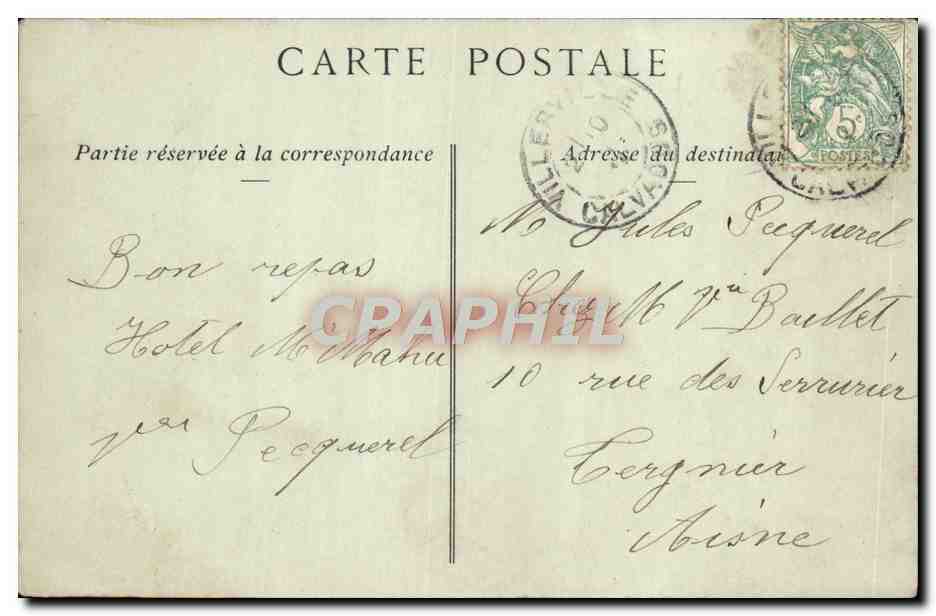 CARTE POSTALE
Partie réservée à la correspondance
Adresse du destinatai
VILLERVILLE
21 10
CALVADOS
5c
POSTES
CALVADOS
Bon repas
Hotel M Mahu
Pecquerel
M Jules Pecquerel
Chez M Baillet
10 rue des Serrurier
Tergnier
Aisne
CRAPHIL